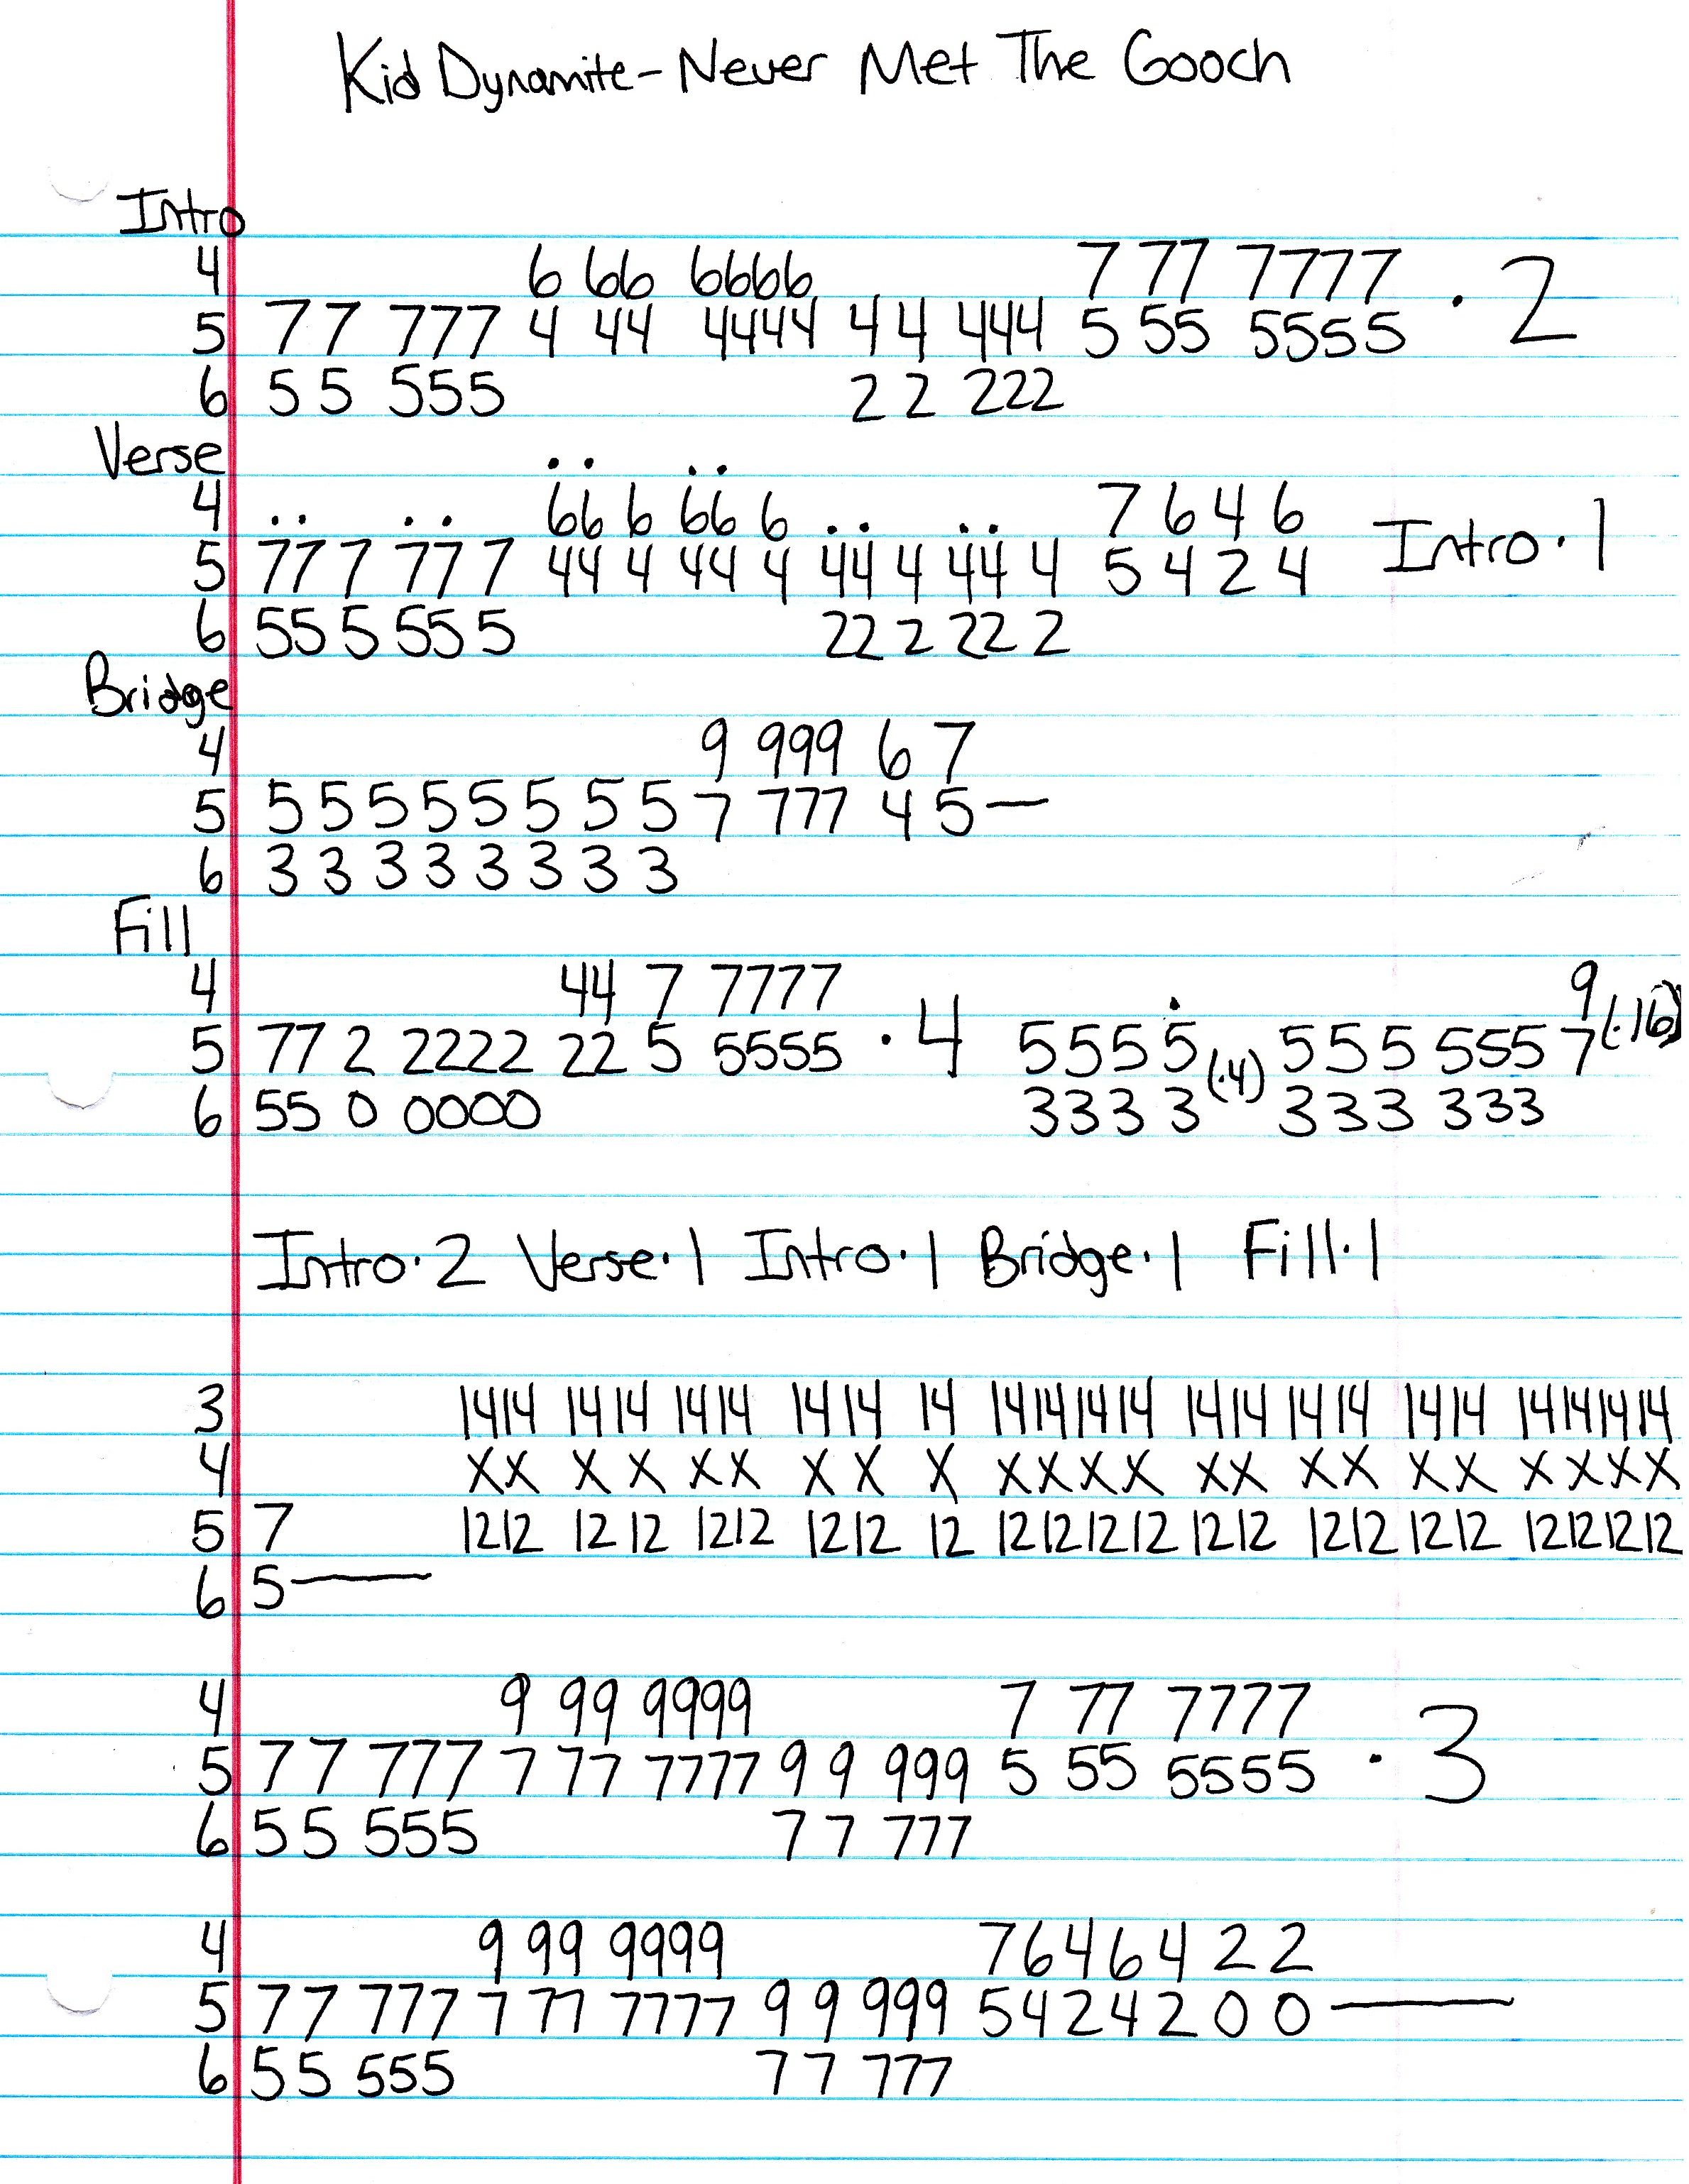 Kid Dynamite - Never Met The Gooch
Intro
4 6 66 6666 7 77 7777 · 2
5 77 777 4 44 4444 44 444 5 55 5555
6 55 555 22 222
Verse
4 66 6 66 6 7 6 4 6 Intro · 1
5 77 7 77 7 44 4 44 4 44 4 44 4 5 4 2 4
6 55 5 55 5 22 2 22 2
Bridge
4 9 999 6 7
5 5 5 5 5 5 5 5 5 7 777 4 5—
6 3 3 3 3 3 3 3 3
Fill
4 44 7 7777 9
5 77 2 2222 22 5 5555 · 4 5555 (·4) 555 555 7 (·16)
6 55 0 0000 3333 333 333
Intro · 2 Verse · 1 Intro · 1 Bridge · 1 Fill · 1
3 1414 1414 1414 1414 14 14141414 1414 1414 1414 14141414
4 XX XX XX XX X XXXX XX XX XX XXXX
5 7 1212 1212 1212 1212 12 12121212 1212 1212 1212 12121212
6 5—
4 9 99 9999 7 77 7777 · 3
5 77 777 7 77 7777 99 999 5 55 5555
6 55 555 77 777
4 9 99 9999 7 6 4 6 4 2 2
5 77 777 7 77 7777 99 999 5 4 2 4 2 0 0—
6 55 555 77 777